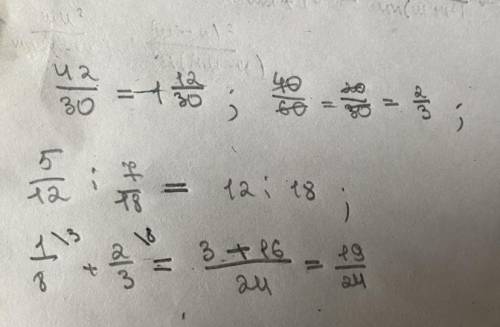 42/30 = 1 12/30 ; 40/60 = 20/30 = 2/3 ;
5/12 ; 7/18 = 12 ; 18 ;
1\3/8 + 2\8/3 = 3 + 16/24 = 19/24